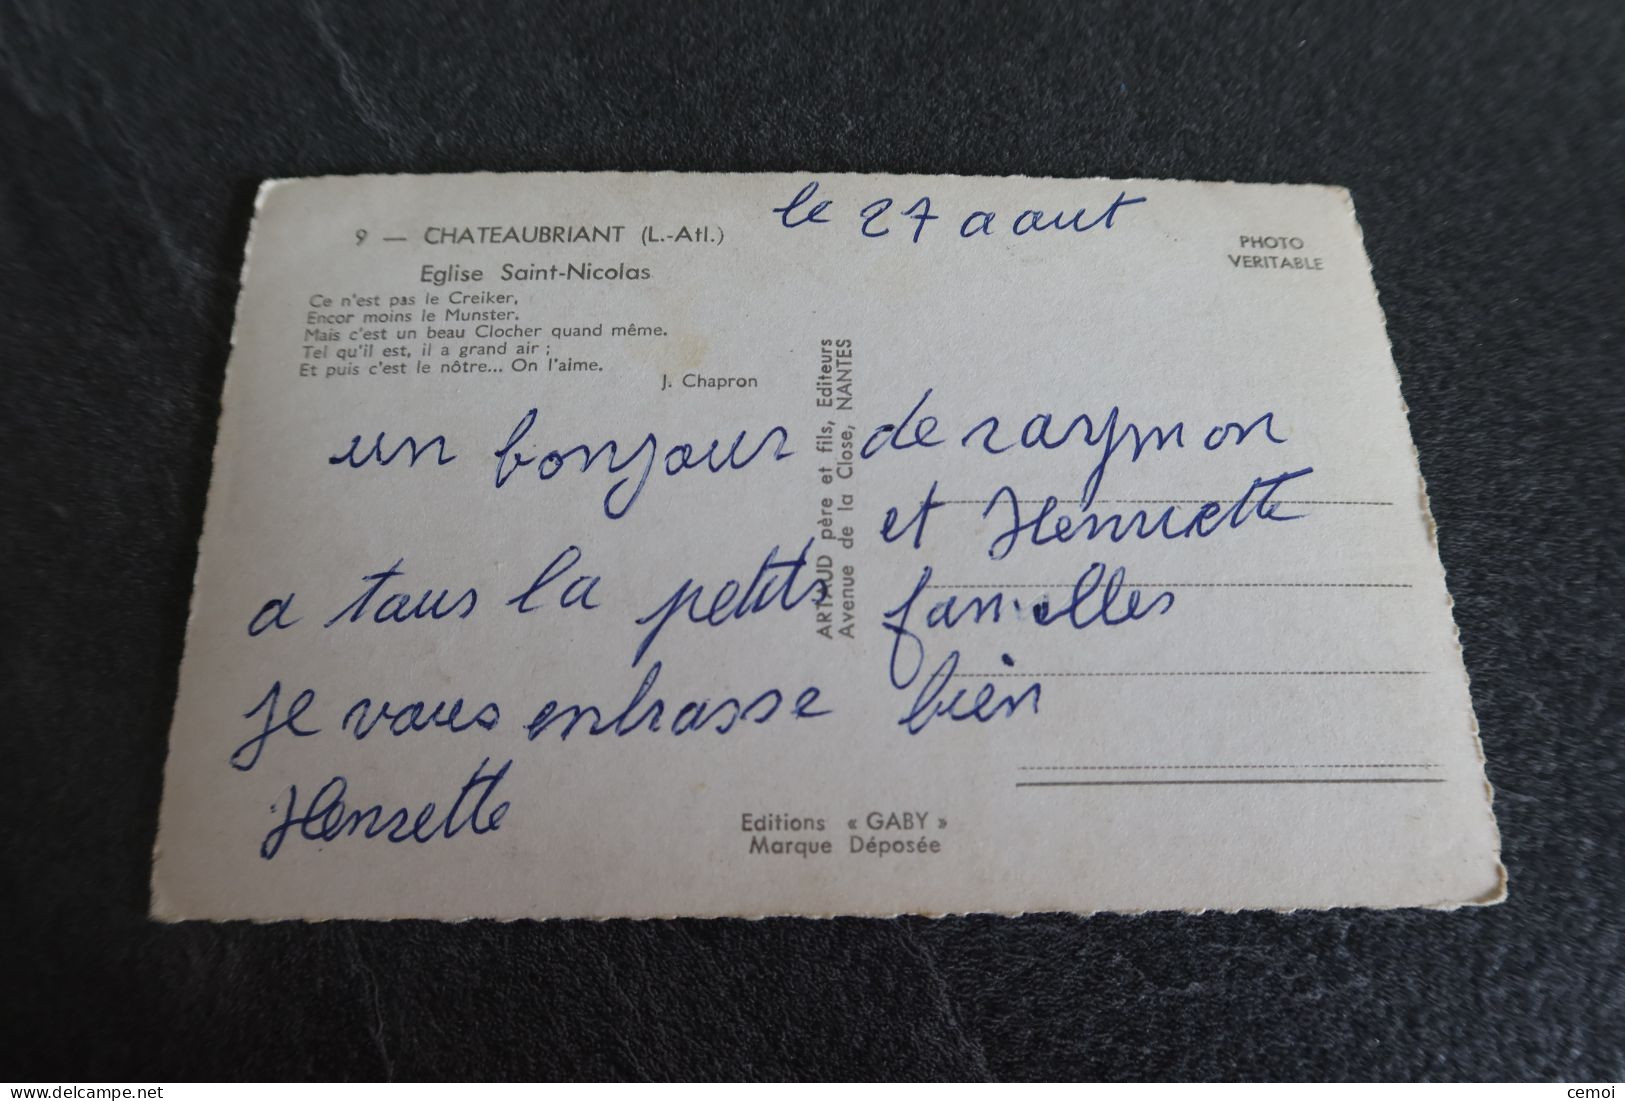 le 27 aaut
9 — CHATEAUBRIANT (L.-Atl.)
Eglise Saint-Nicolas
PHOTO
VERITABLE
Ce n'est pas le Creiker,
Encor moins le Munster.
Mais c'est un beau Clocher quand même.
Tel qu'il est, il a grand air ;
Et puis c'est le nôtre... On l'aime.
J. Chapron
ARTAUD père et fils, Editeurs
Avenue de la Close, NANTES
un bonjour de raymon
et Henriette
a taus la petits familles
Je vous enbrasse bien
Henriette
Editions « GABY »
Marque Déposée
cemoi